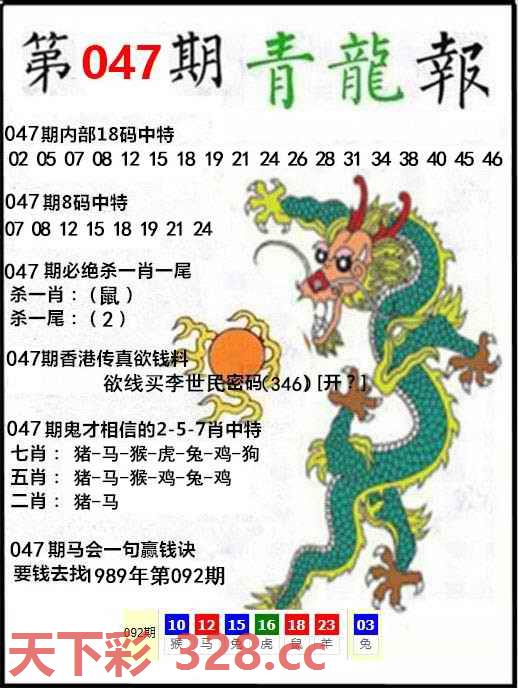 第047期青龍報
047期内部18码中特
02 05 07 08 12 15 18 19 21 24 26 28 31 34 38 40 45 46
047期8码中特
07 08 12 15 18 19 21 24
047期必绝杀一肖一尾
杀一肖：（鼠）
杀一尾：（2）
047期香港传真欲钱料
欲线买李世民密码(346)[开？]
047期鬼才相信的2-5-7肖中特
七肖：猪-马-猴-虎-兔-鸡-狗
五肖：猪-马-猴-鸡-兔-鸡
二肖：猪-马
047期马会一句赢钱诀
要钱去找1989年第092期
092期 10 12 15 16 18 23 03
猴 马 兔 虎 鼠 羊 兔
天下彩 328.cc